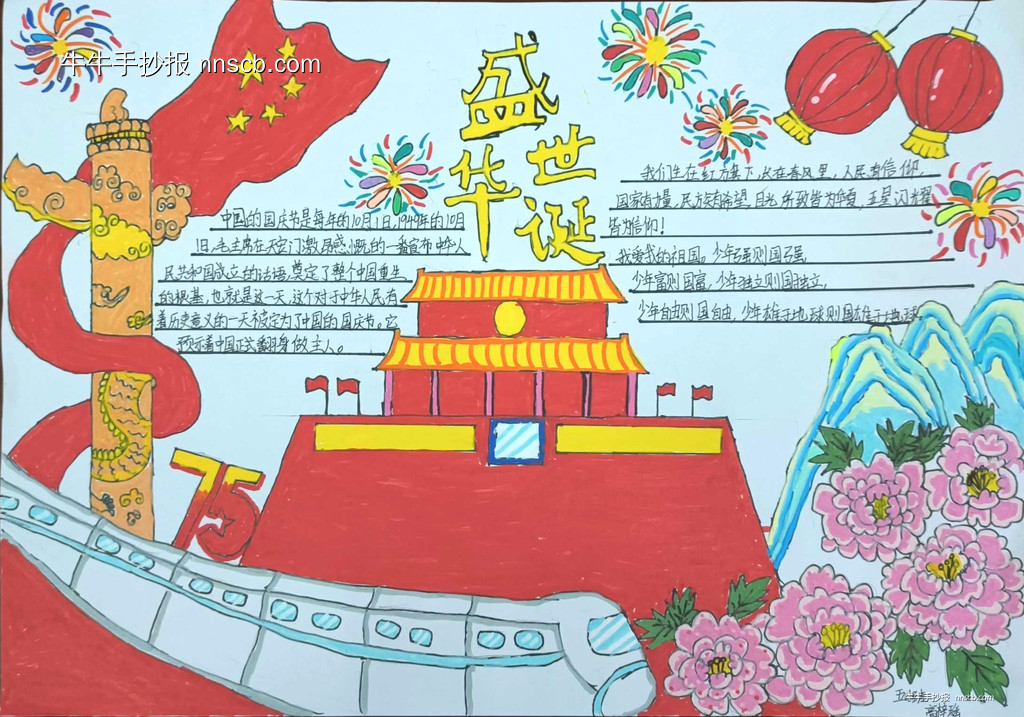 牛牛手抄报 nnscb.com
盛
华世
诞
中国的国庆节是每年的10月1日,1949年的10月
1日,毛主席在天安门激昂感慨的一番宣布中华人
民共和国成立的话语,奠定了整个中国重生
的根基,也就是这一天,这个对于中华人民有
着历史意义的一天被定为了中国的国庆节。它
预示着中国正式翻身做主人。
我们生在红方旗下,长在春风里,人民有信仰,
国家有力量,民族有希望,目光所致皆为华夏,五星闪耀
皆为信仰!
我爱我的祖国。少年强则国强
少年富则国富,少年独立则国独立,
少年自由则国自由,少年雄于地球则国雄于地球。
75
牛牛手抄报 nnscb.com